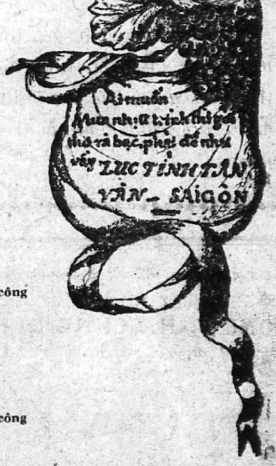 Ai muốn
Mua nhựt trình thì gởi
thơ và bạc, phải đề như
vầy LỤC TỈNH TÂN
VĂN_ SAIGON
công
công